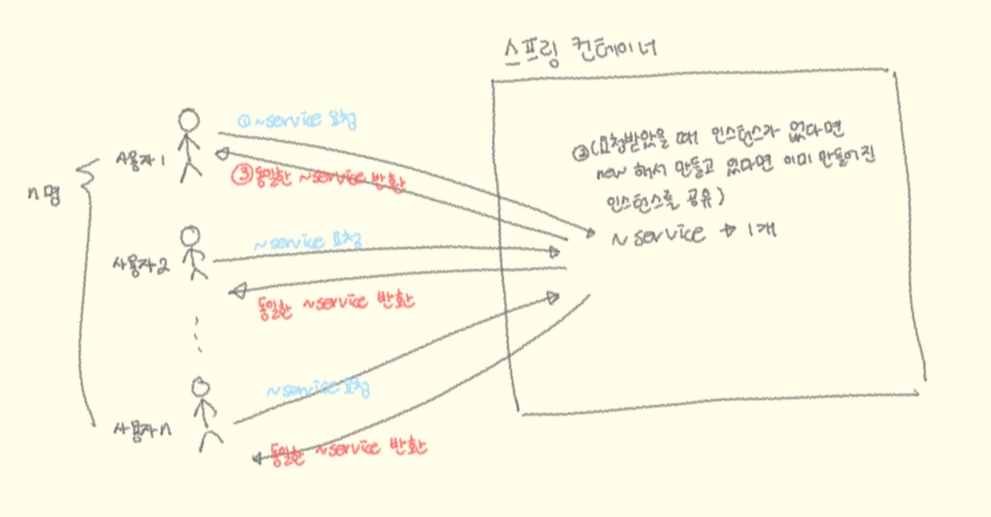 스프링 컨테이너
n명
사용자1
① ~service 요청
③동일한 ~service 반환
②(요청받았을 때 인스턴스가 없다면
new 해서 만들고 있다면 이미 만들어진
인스턴스를 공유)
~ service → 1개
사용자2
~service 요청
동일한 ~service 반환
사용자n
~service 요청
동일한 ~service 반환